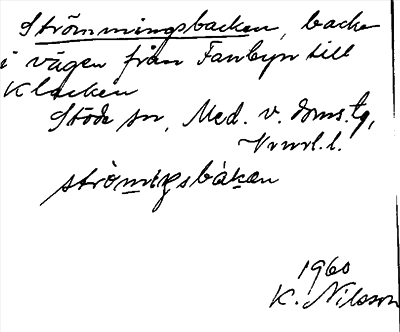 Strömmingsbacken, backe
i vägen från Fanbyn till
Klacken
Stöde sn, Med. v. doms.tg,
Vnrl.l.
strömiŋsbákan
1960
K. Nilsson